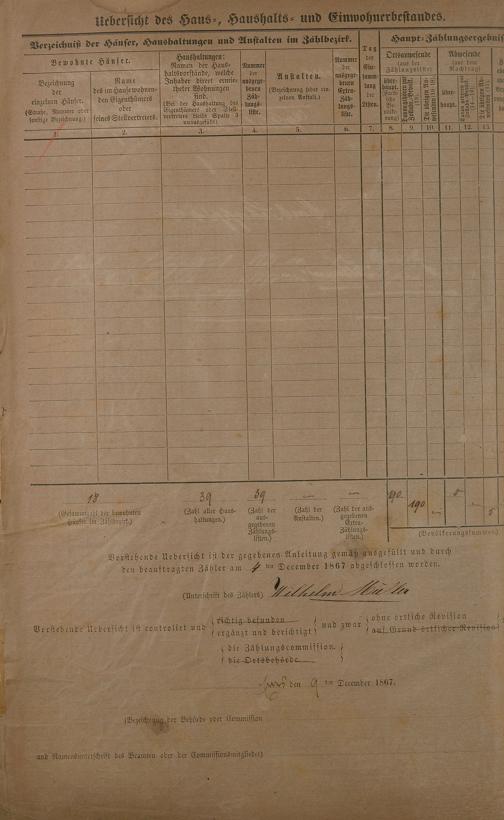 Uebersicht des Haus-, Haushalts- und Einwohnerbestandes.
Verzeichniß der Häuser, Haushaltungen und Anstalten im Zählbezirk.
Haupt-Zählungsergebnis
Bewohnte Häuser.
Bezeichnung
der
einzelnen Häuser.
(Straße, Nummer oder
sonstige Bezeichnung.)
Name
des im Hause wohnen-
den Eigenthümers
oder
seines Stellvertreters.
Haushaltungen:
Namen der Haus-
haltsvorstände, welche
Inhaber direct ermie-
theter Wohnungen
sind.
Nummer
der
ausgege-
benen
Zäh-
lungs-
liste.
Anstalten.
(Bezeichnung jeder ein-
zelnen Anstalt.)
Nummer
der
ausgege-
benen
Extra-
Zählungs-
liste.
Tag
der
Ein-
samm-
lung
der
Listen.
Ortsanwesende
(aus der
Zählungsliste)
Abwesende
(aus dem
Nachtrag)
1. 2. 3. 4. 5. 6. 7. 8. 9. 10. 11. 12. 13.
18 39 39 — — 190 190 — 5 — 5
(Gesammtzahl der bewohnten
Häuser im Zählbezirk.)
(Zahl aller Haus-
haltungen.)
(Zahl der
aus-
gegebenen
Zählungs-
listen.)
(Zahl der
Anstalten.)
(Zahl der aus-
gegebenen
Extra-
Zählungs-
listen.)
(Bevölkerungssummen.)
Vorstehende Uebersicht ist der gegebenen Anleitung gemäß ausgefüllt und durch
den beauftragten Zähler am 4 ten December 1867 abgeschlossen worden.
(Unterschrift des Zählers) Wilhelm Müller
Vorstehende Uebersicht ist controlirt und
richtig befunden
ergänzt und berichtigt
und zwar
ohne örtliche Revision
auf Grund örtlicher Revision
die Zählungscommission
die Ortsbehörde
den 9 ten December 1867.
(Bezeichnung der Behörde oder Commission
und Namensunterschrift des Beamten oder der Commissionsmitglieder)